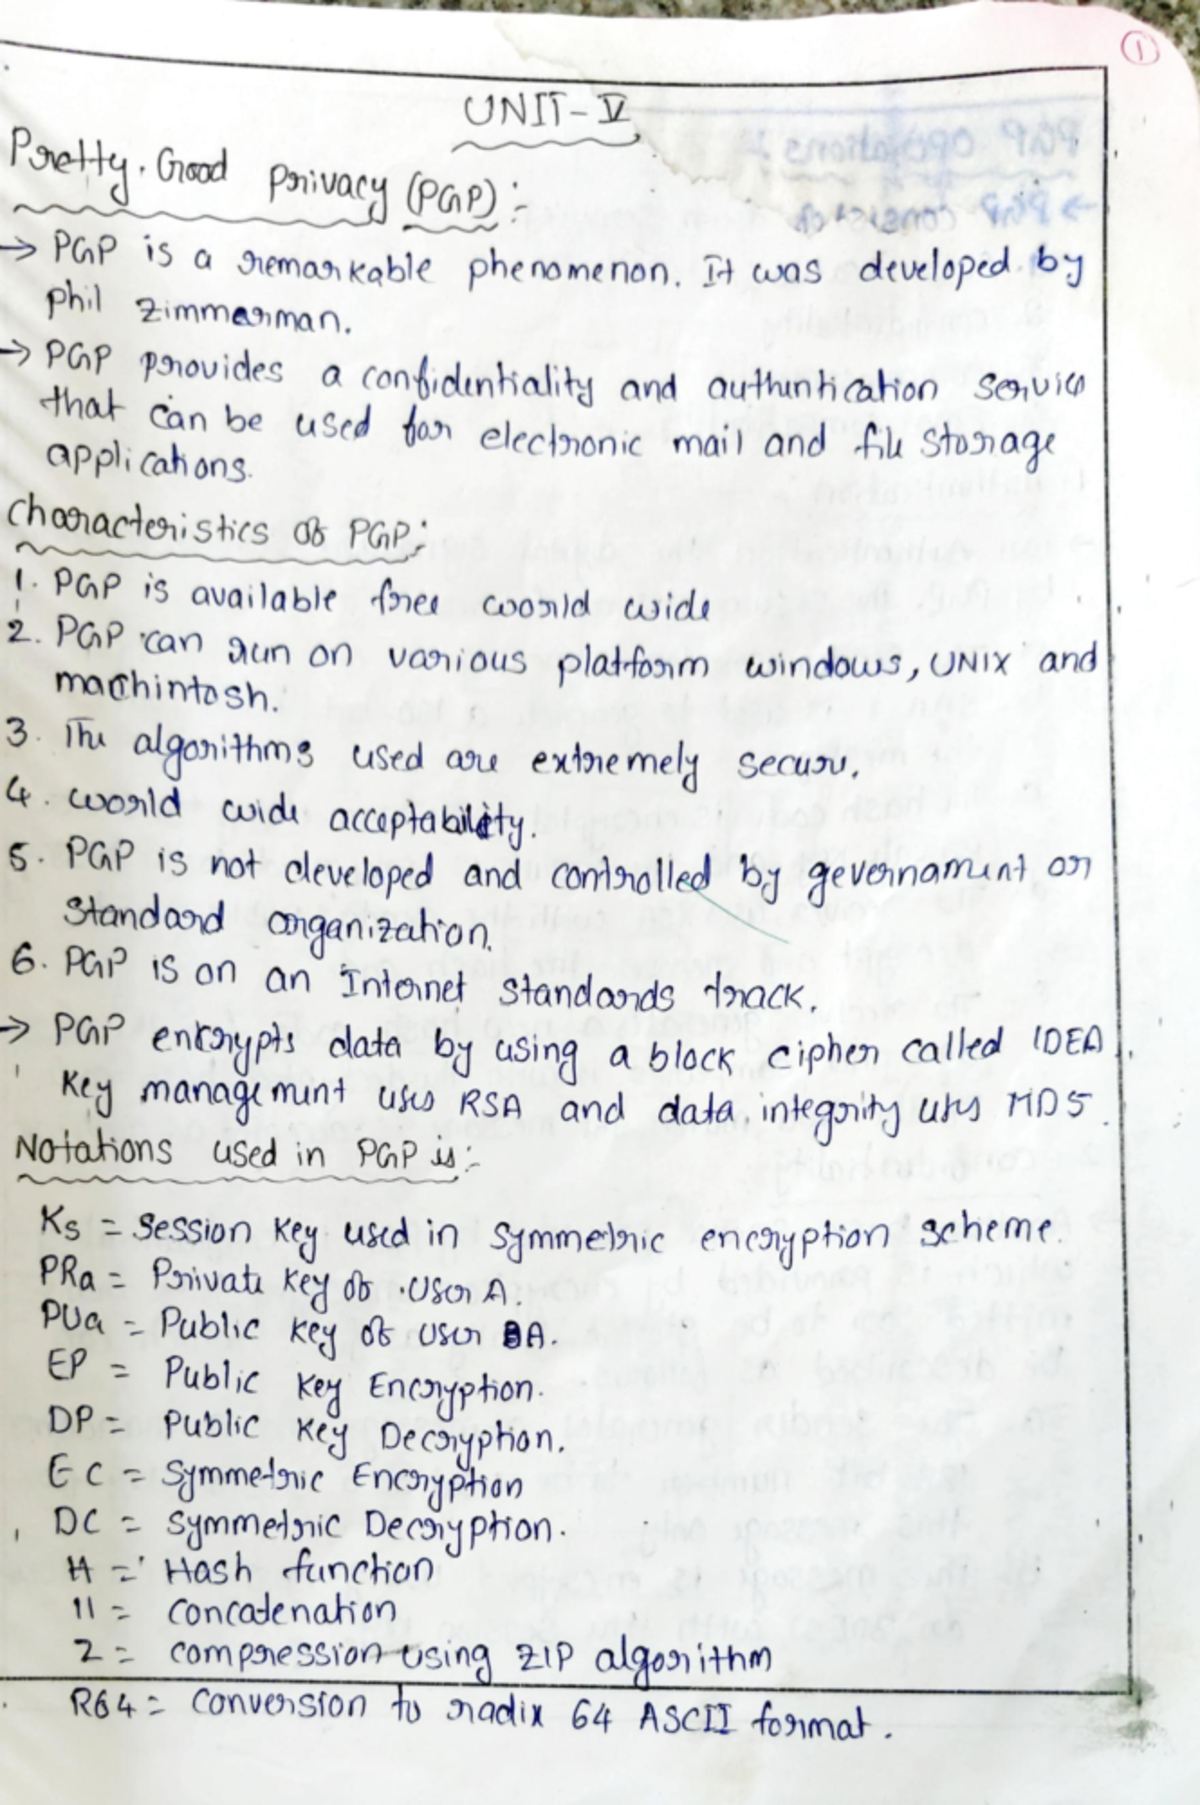 ①
UNIT-V
Pretty Good Privacy (PGP):-
→ PGP is a remarkable phenomenon. It was developed by
Phil Zimmerman.
→ PGP provides a confidentiality and authuntication service
that can be used for electronic mail and file storage
applications.
Characteristics of PGP:
1. PGP is available free world wide
2. PGP can run on various platform windows, UNIX and
macchintosh.
3. The algorithms used are extremely secure.
4. World wide acceptability.
5. PGP is not developed and controlled by gevernament or
standard organization.
6. PGP is on an Internet standards track.
→ PGP encrypts data by using a block cipher called IDEA,
Key management uses RSA and data integrity uses MD5.
Notations used in PGP is:-
Ks = Session key used in symmetric encryption scheme.
PRa = Private key of User A.
PUa = Public key of User A.
EP = Public key Encryption.
DP = Public key Decryption.
EC = Symmetric Encryption
DC = Symmetric Decryption.
H = Hash function
|| = Concatenation
Z = compression using ZIP algorithm
R64 = Conversion to radix 64 ASCII format.